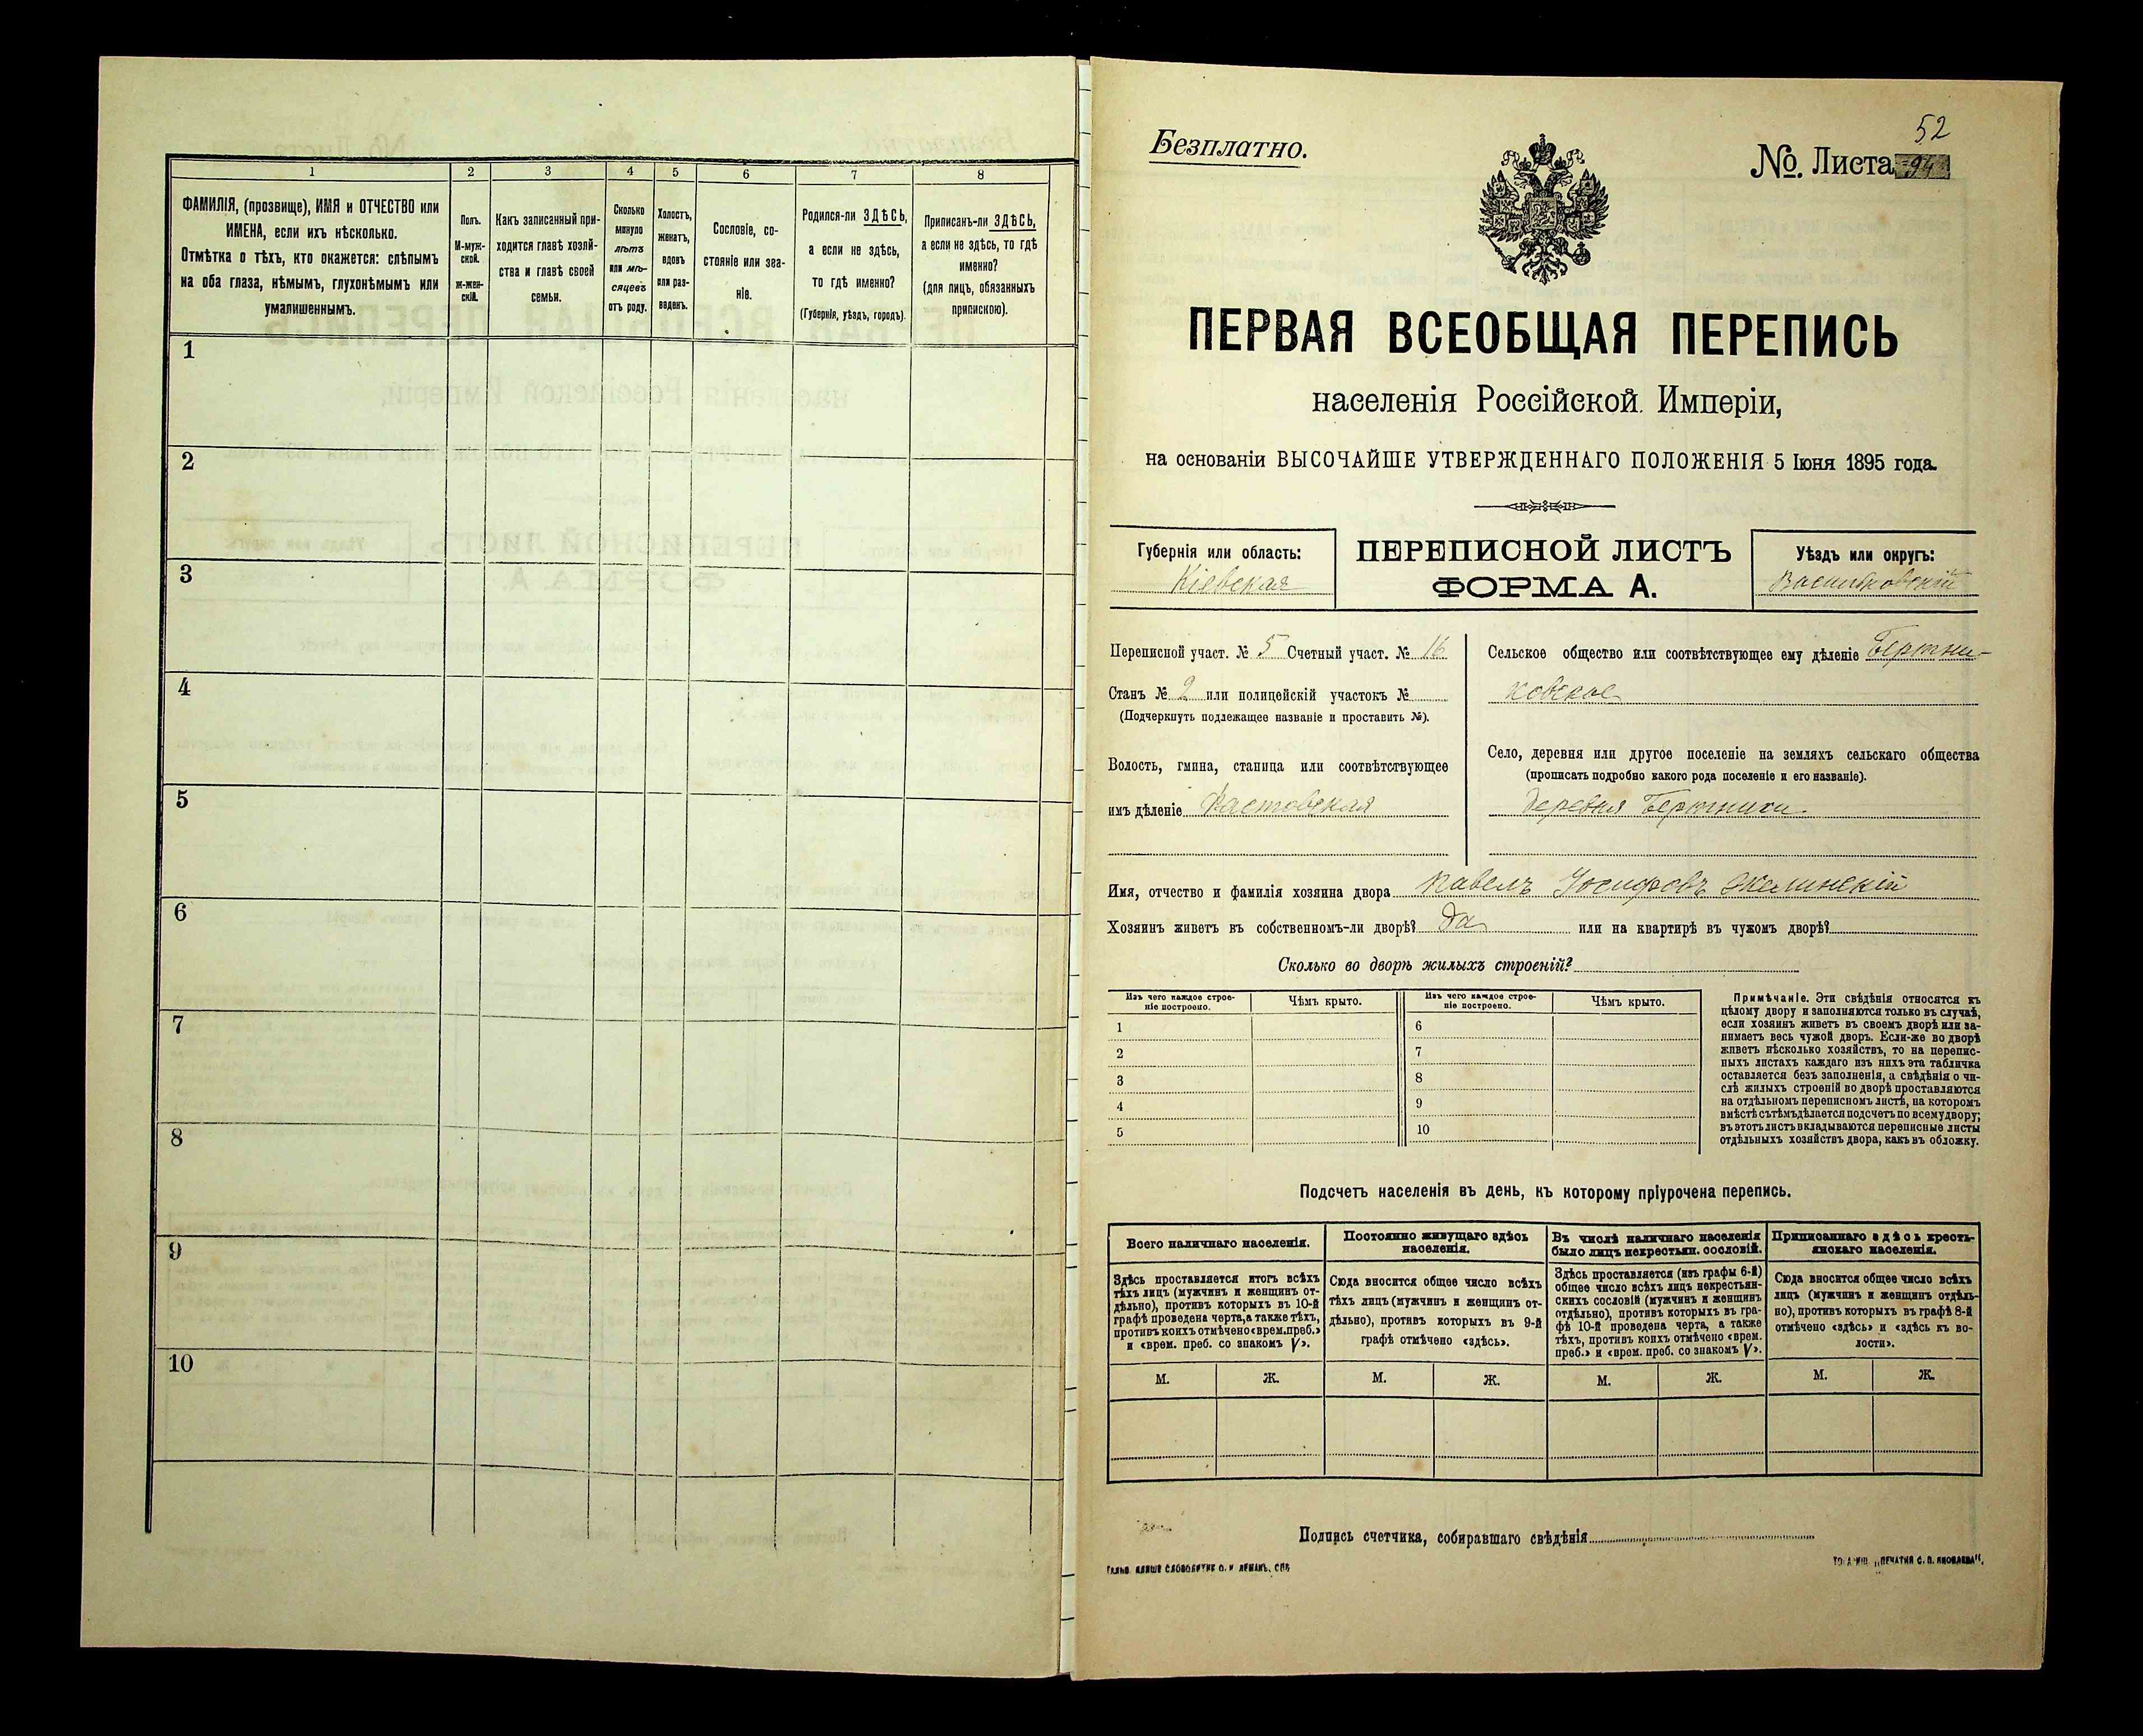 1 2 3 4 5 6 7 8
ФАМИЛІЯ, (прозвище), ИМЯ и ОТЧЕСТВО или
ИМЕНА, если ихъ нѣсколько.
Отмѣтка о тѣхъ, кто окажется: слѣпымъ
на оба глаза, нѣмымъ, глухонѣмымъ или
умалишеннымъ.
Полъ.
М-муж-
ской.
ж-жен-
скій.
Какъ записанный при-
ходится главѣ хозяй-
ства и главѣ своей
семьи.
Сколько
минуло
лѣтъ
или мѣ-
сяцевъ
отъ роду.
Холостъ,
женатъ,
вдовъ
или раз-
веденъ.
Сословіе, со-
стояніе или зва-
ніе.
Родился-ли ЗДѢСЬ,
а если не здѣсь,
то гдѣ именно?
(Губернія, уѣздъ, городъ).
Приписанъ-ли ЗДѢСЬ,
а если не здѣсь, то гдѣ
именно?
(для лицъ, обязанныхъ
припискою).
1
2
3
4
5
6
7
8
9
10
52
Безплатно.
№. Листа 94
ПЕРВАЯ ВСЕОБЩАЯ ПЕРЕПИСЬ
населенія Россійской Имперіи,
на основаніи ВЫСОЧАЙШЕ УТВЕРЖДЕННАГО ПОЛОЖЕНІЯ 5 Іюня 1895 года.
Губернія или область:
Кіевская
ПЕРЕПИСНОЙ ЛИСТЪ
ФОРМА А.
Уѣздъ или округъ:
Васильковскій
Переписной участ. № 5 Счетный участ. № 16
Станъ № 2 или полицейскій участокъ №
(Подчеркнуть подлежащее названіе и проставить №).
Волость, гмина, станица или соотвѣтствующее
имъ дѣленіе Фастовская
Сельское общество или соотвѣтствующее ему дѣленіе Бертни-
ковское
Село, деревня или другое поселеніе на земляхъ сельскаго общества
(прописать подробно какого рода поселеніе и его названіе).
деревня Бертники
Имя, отчество и фамилія хозяина двора Павелъ Іосифовъ Желинскій
Хозяинъ живетъ въ собственномъ-ли дворѣ? Да или на квартирѣ въ чужомъ дворѣ?
Сколько во дворѣ жилыхъ строеній?
Изъ чего каждое строе-
ніе построено.
Чѣмъ крыто.
Изъ чего каждое строе-
ніе построено.
Чѣмъ крыто.
1 6
2 7
3 8
4 9
5 10
Примѣчаніе. Эти свѣдѣнія относятся къ
цѣлому двору и заполняются только въ случаѣ,
если хозяинъ живетъ въ своемъ дворѣ или за-
нимаетъ весь чужой дворъ. Если-же во дворѣ
живетъ нѣсколько хозяйствъ, то на перепис-
ныхъ листахъ каждаго изъ нихъ эта табличка
оставляется безъ заполненія, а свѣдѣнія о чи-
слѣ жилыхъ строеній во дворѣ проставляются
на отдѣльномъ переписномъ листѣ, на которомъ
вмѣстѣ съ тѣмъ дѣлается подсчетъ по всему двору;
въ этотъ листъ вкладываются переписные листы
отдѣльныхъ хозяйствъ двора, какъ въ обложку.
Подсчетъ населенія въ день, къ которому пріурочена перепись.
Всего наличнаго населенія.
Здѣсь проставляется итогъ всѣхъ
тѣхъ лицъ (мужчинъ и женщинъ от-
дѣльно), противъ которыхъ въ 10-й
графѣ проведена черта, а также тѣхъ,
противъ коихъ отмѣчено «врем. преб.»
и «врем. преб. со знакомъ V».
Постоянно живущаго здѣсь
населенія.
Сюда вносится общее число всѣхъ
тѣхъ лицъ (мужчинъ и женщинъ от-
дѣльно), противъ которыхъ въ 9-й
графѣ отмѣчено «здѣсь».
Въ числѣ наличнаго населенія
было лицъ некрестьян. сословій.
Здѣсь проставляется (изъ графы 6-й)
общее число всѣхъ лицъ некрестьян-
скихъ сословій (мужчинъ и женщинъ
отдѣльно), противъ которыхъ въ гра-
фѣ 10-й проведена черта, а также
тѣхъ, противъ коихъ отмѣчено «врем.
преб.» и «врем. преб. со знакомъ V».
Приписаннаго здѣсь кресть-
янскаго населенія.
Сюда вносится общее число всѣхъ
лицъ (мужчинъ и женщинъ отдѣль-
но), противъ которыхъ въ графѣ 8-й
отмѣчено «здѣсь» и «здѣсь къ во-
лости».
М. Ж. М. Ж. М. Ж. М. Ж.
Подпись счетчика, собиравшаго свѣдѣнія